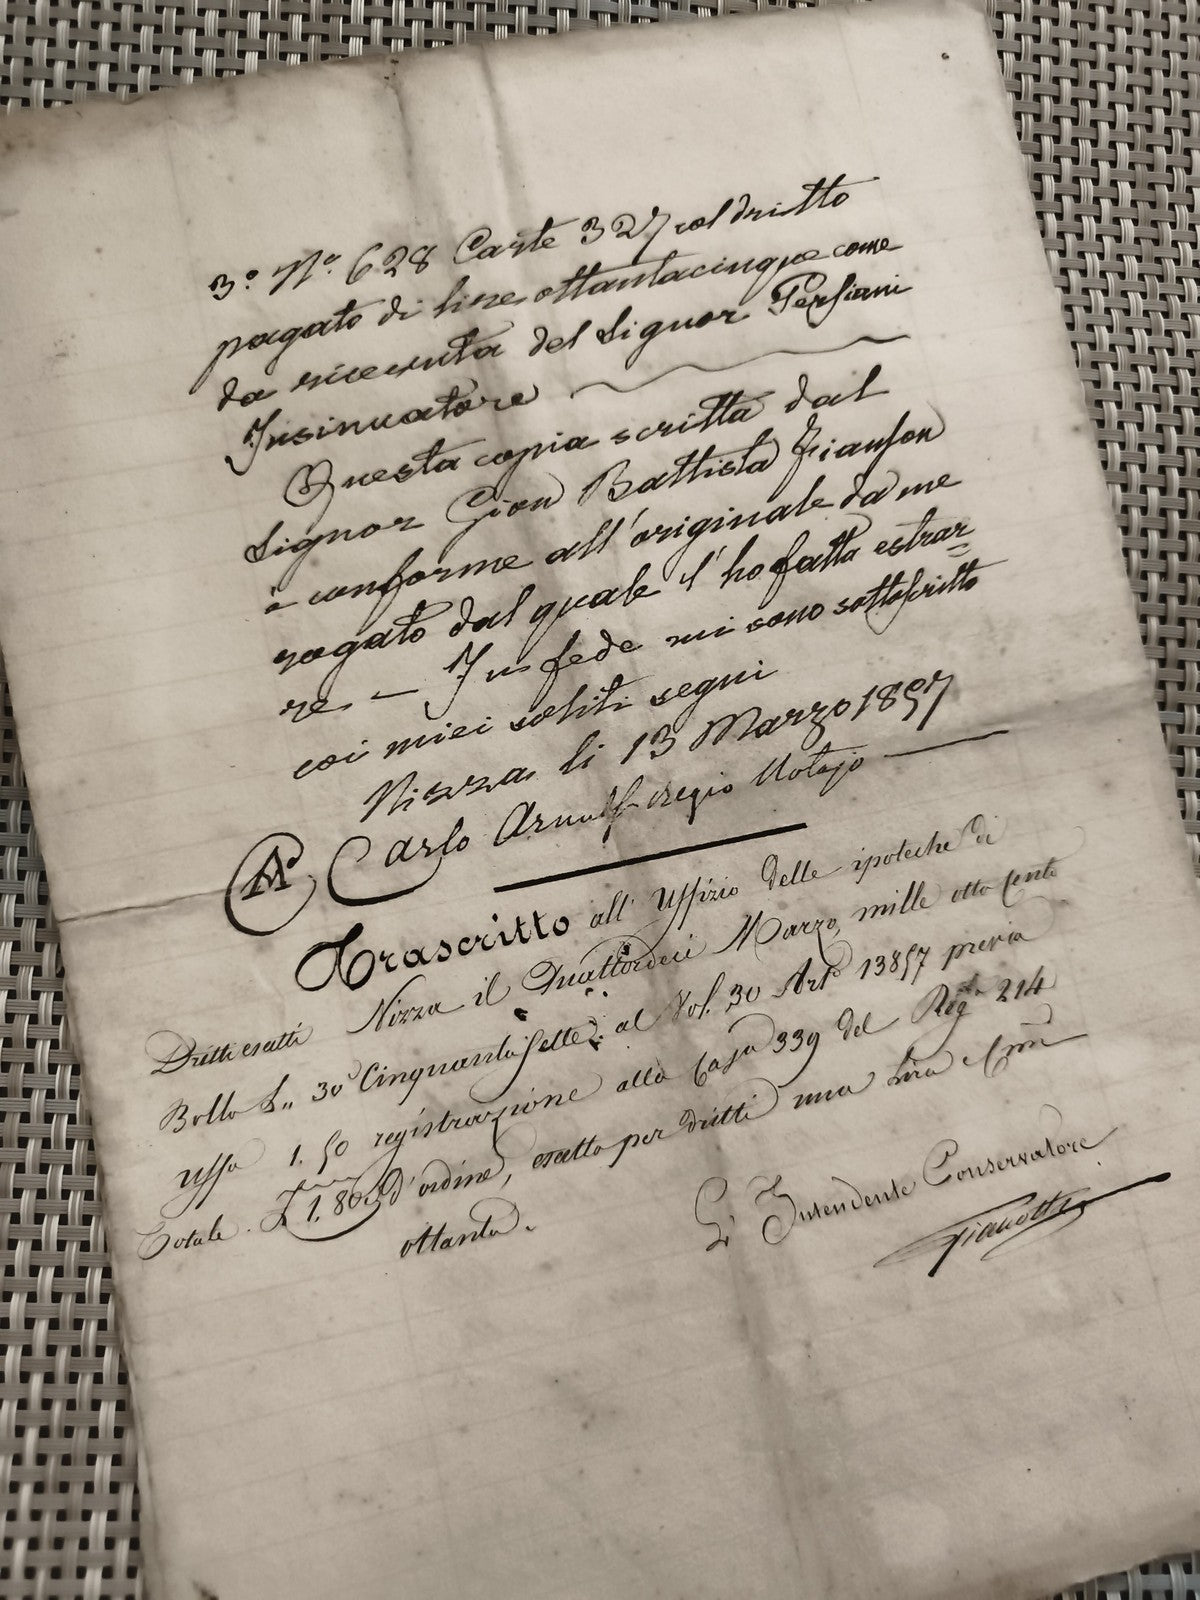 3.º Nº. 628 Carte 327 col dritto
pagato di lire ottantacinque come
da ricevuta del Signor Persiani
Insinuatore
Questa copia scritta dal
Signor Gion Battista
è conforme all'originale da me
rogato dal quale l'ho fatta estrar=
re — In fede mi sono sottoscritto
coi miei soliti segni
Nizza li 13 Marzo 1857
Aº Carlo Arnulf regio Notajo
Trascritto all' Uffizio delle ipoteche di
Nizza il Quattordeci Marzo, mille otto cento
Cinquanta Sette, al Vol. 30 Artº 13857 previa
registrazione alla Casa 339 del Regº 214
d'ordine, esatto per dritti una lira e Cmi
ottanta.
Dritti esatti
Bollo L,, 30
Uffº 1. 50
Totale L 1. 80
L'Intendente Conservatore